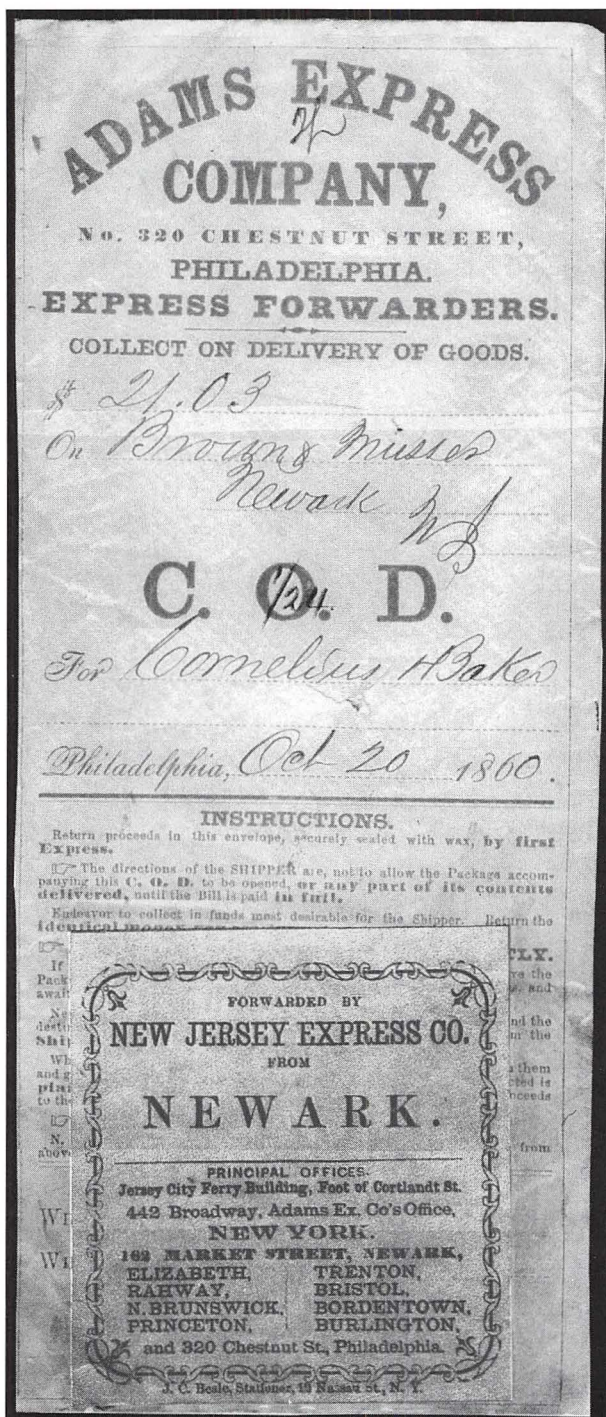 ADAMS EXPRESS
COMPANY,
No. 320 CHESTNUT STREET,
PHILADELPHIA.
EXPRESS FORWARDERS.
COLLECT ON DELIVERY OF GOODS.
$ 21.03
On Brown & Musser
Newark NJ
C. O. D.
1/24.
For Cornelius & Baker
Philadelphia, Oct 20 1860.
INSTRUCTIONS.
Return proceeds in this envelope, securely sealed with wax, by first
Express.
☞ The directions of the SHIPPER are, not to allow the Package accom-
panying this C. O. D. to be opened, or any part of its contents
delivered, until the Bill is paid in full.
Endeavor to collect in funds most desirable for the Shipper. Return the
identical money
☞
If
Pack
await
and
nd the
Ship
the
Wh
them
and g
is
to the
☞
N.
above
from
FORWARDED BY
NEW JERSEY EXPRESS CO.
FROM
NEWARK.
PRINCIPAL OFFICES.
Jersey City Ferry Building, Foot of Cortlandt St.
442 Broadway, Adams Ex. Co's Office,
NEW YORK.
162 MARKET STREET, NEWARK,
ELIZABETH, TRENTON,
RAHWAY, BRISTOL,
N. BRUNSWICK, BORDENTOWN,
PRINCETON, BURLINGTON,
and 320 Chestnut St., Philadelphia.
J. C. Beale, Stationer, 19 Nassau St., N. Y.